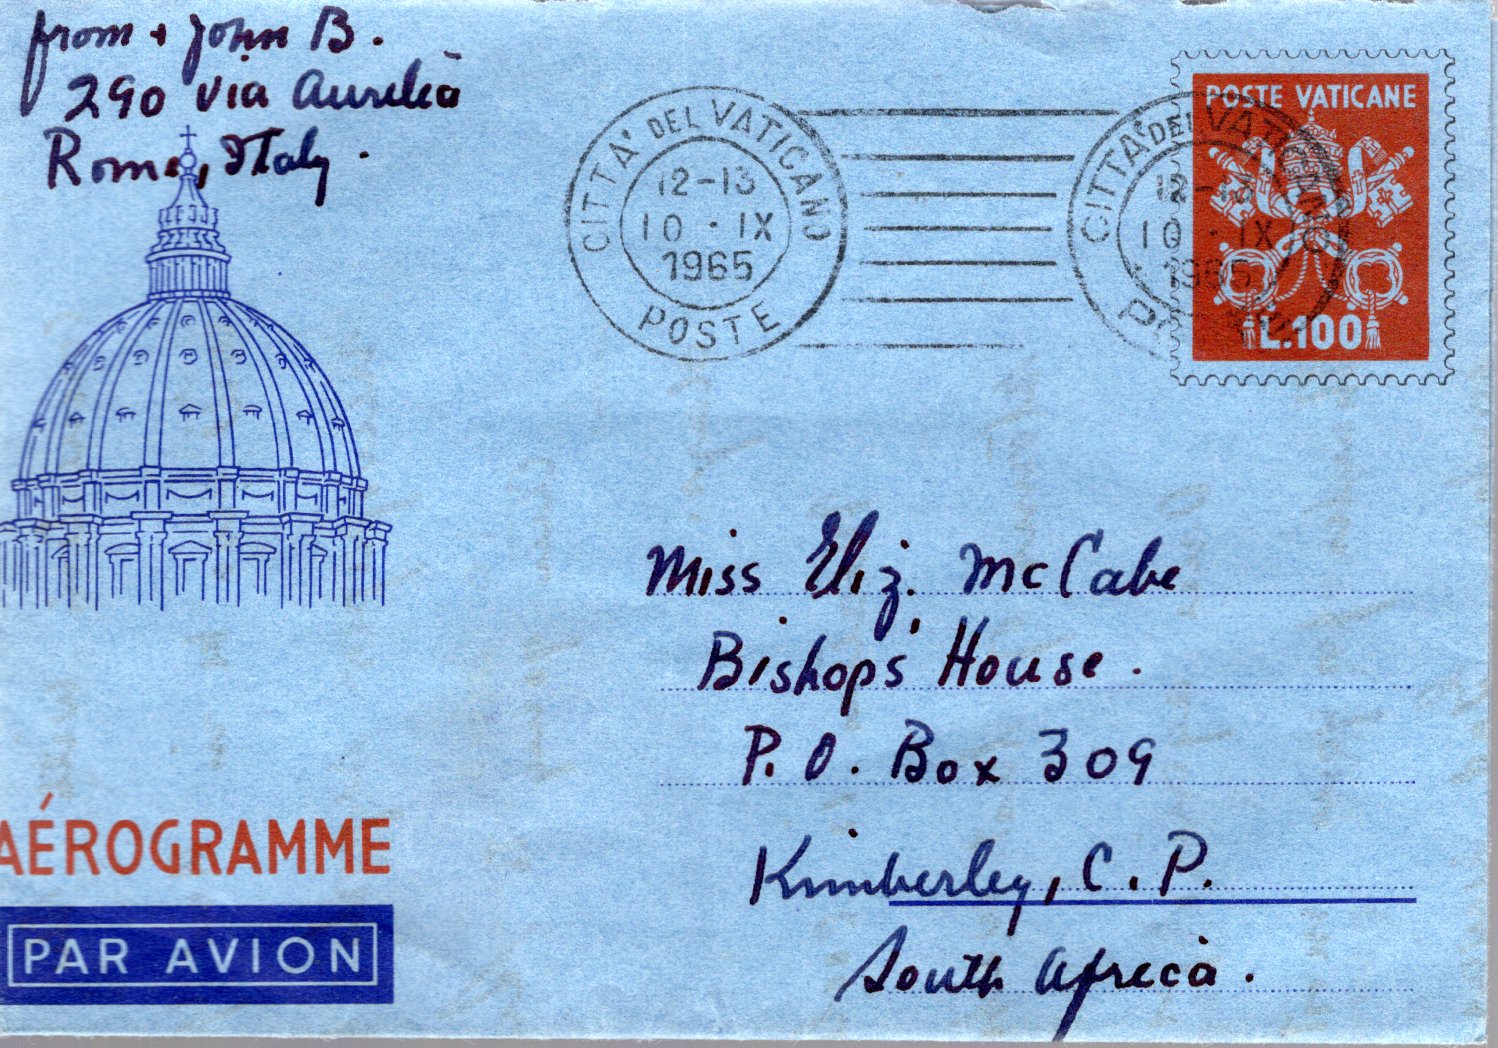 from + John B.
290 via Aurelia
Rome, Italy.
CITTA' DEL VATICANO
12-13
10 · IX
1965
POSTE
CITTA' DEL VATICANO
12-13
10 · IX
1965
POSTE VATICANE
L.100
Miss Eliz. McCabe
Bishop's House.
P.O. Box 309
Kimberley, C.P.
South Africa.
AÉROGRAMME
PAR AVION